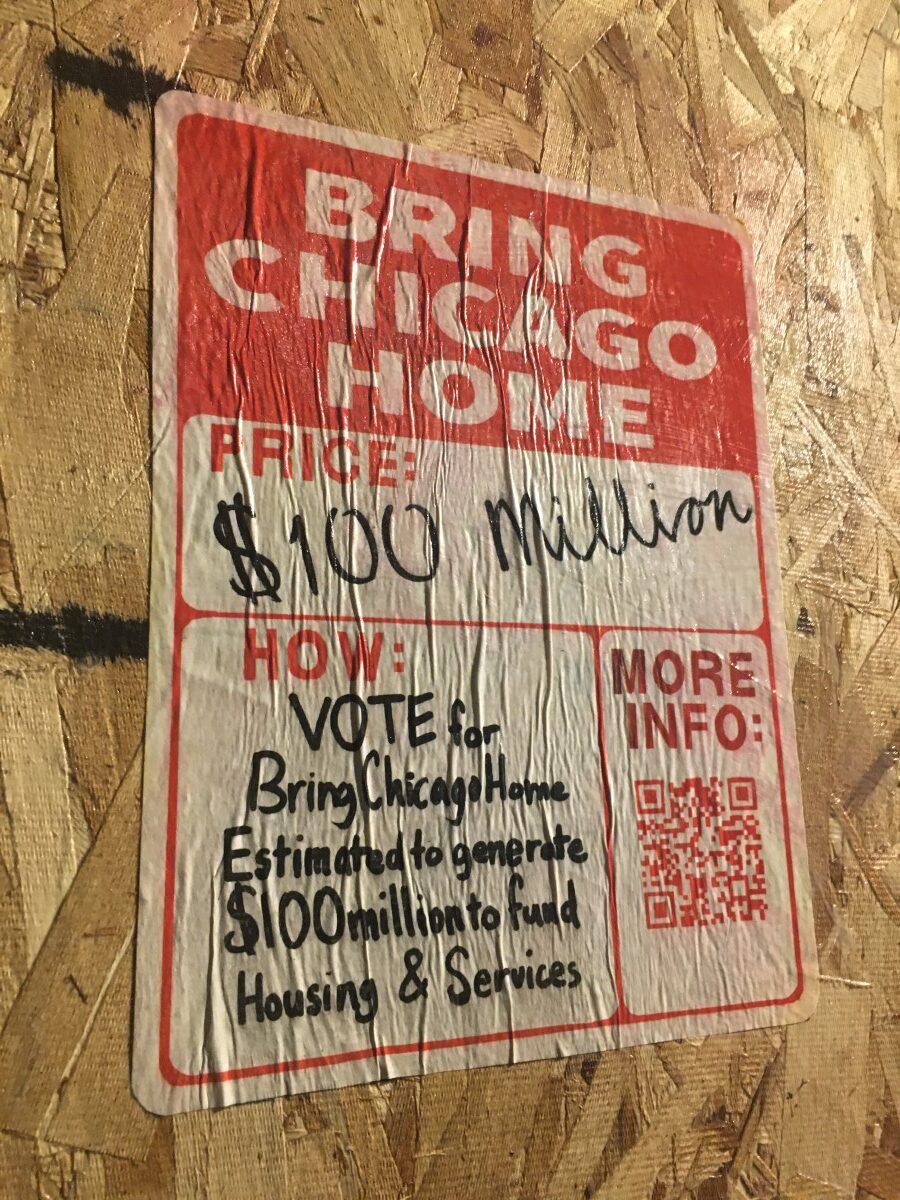 BRING
CHICAGO
HOME
PRICE:
$100 Million
HOW:
VOTE for
Bring Chicago Home
Estimated to generate
$100 million to fund
Housing & Services
MORE
INFO: